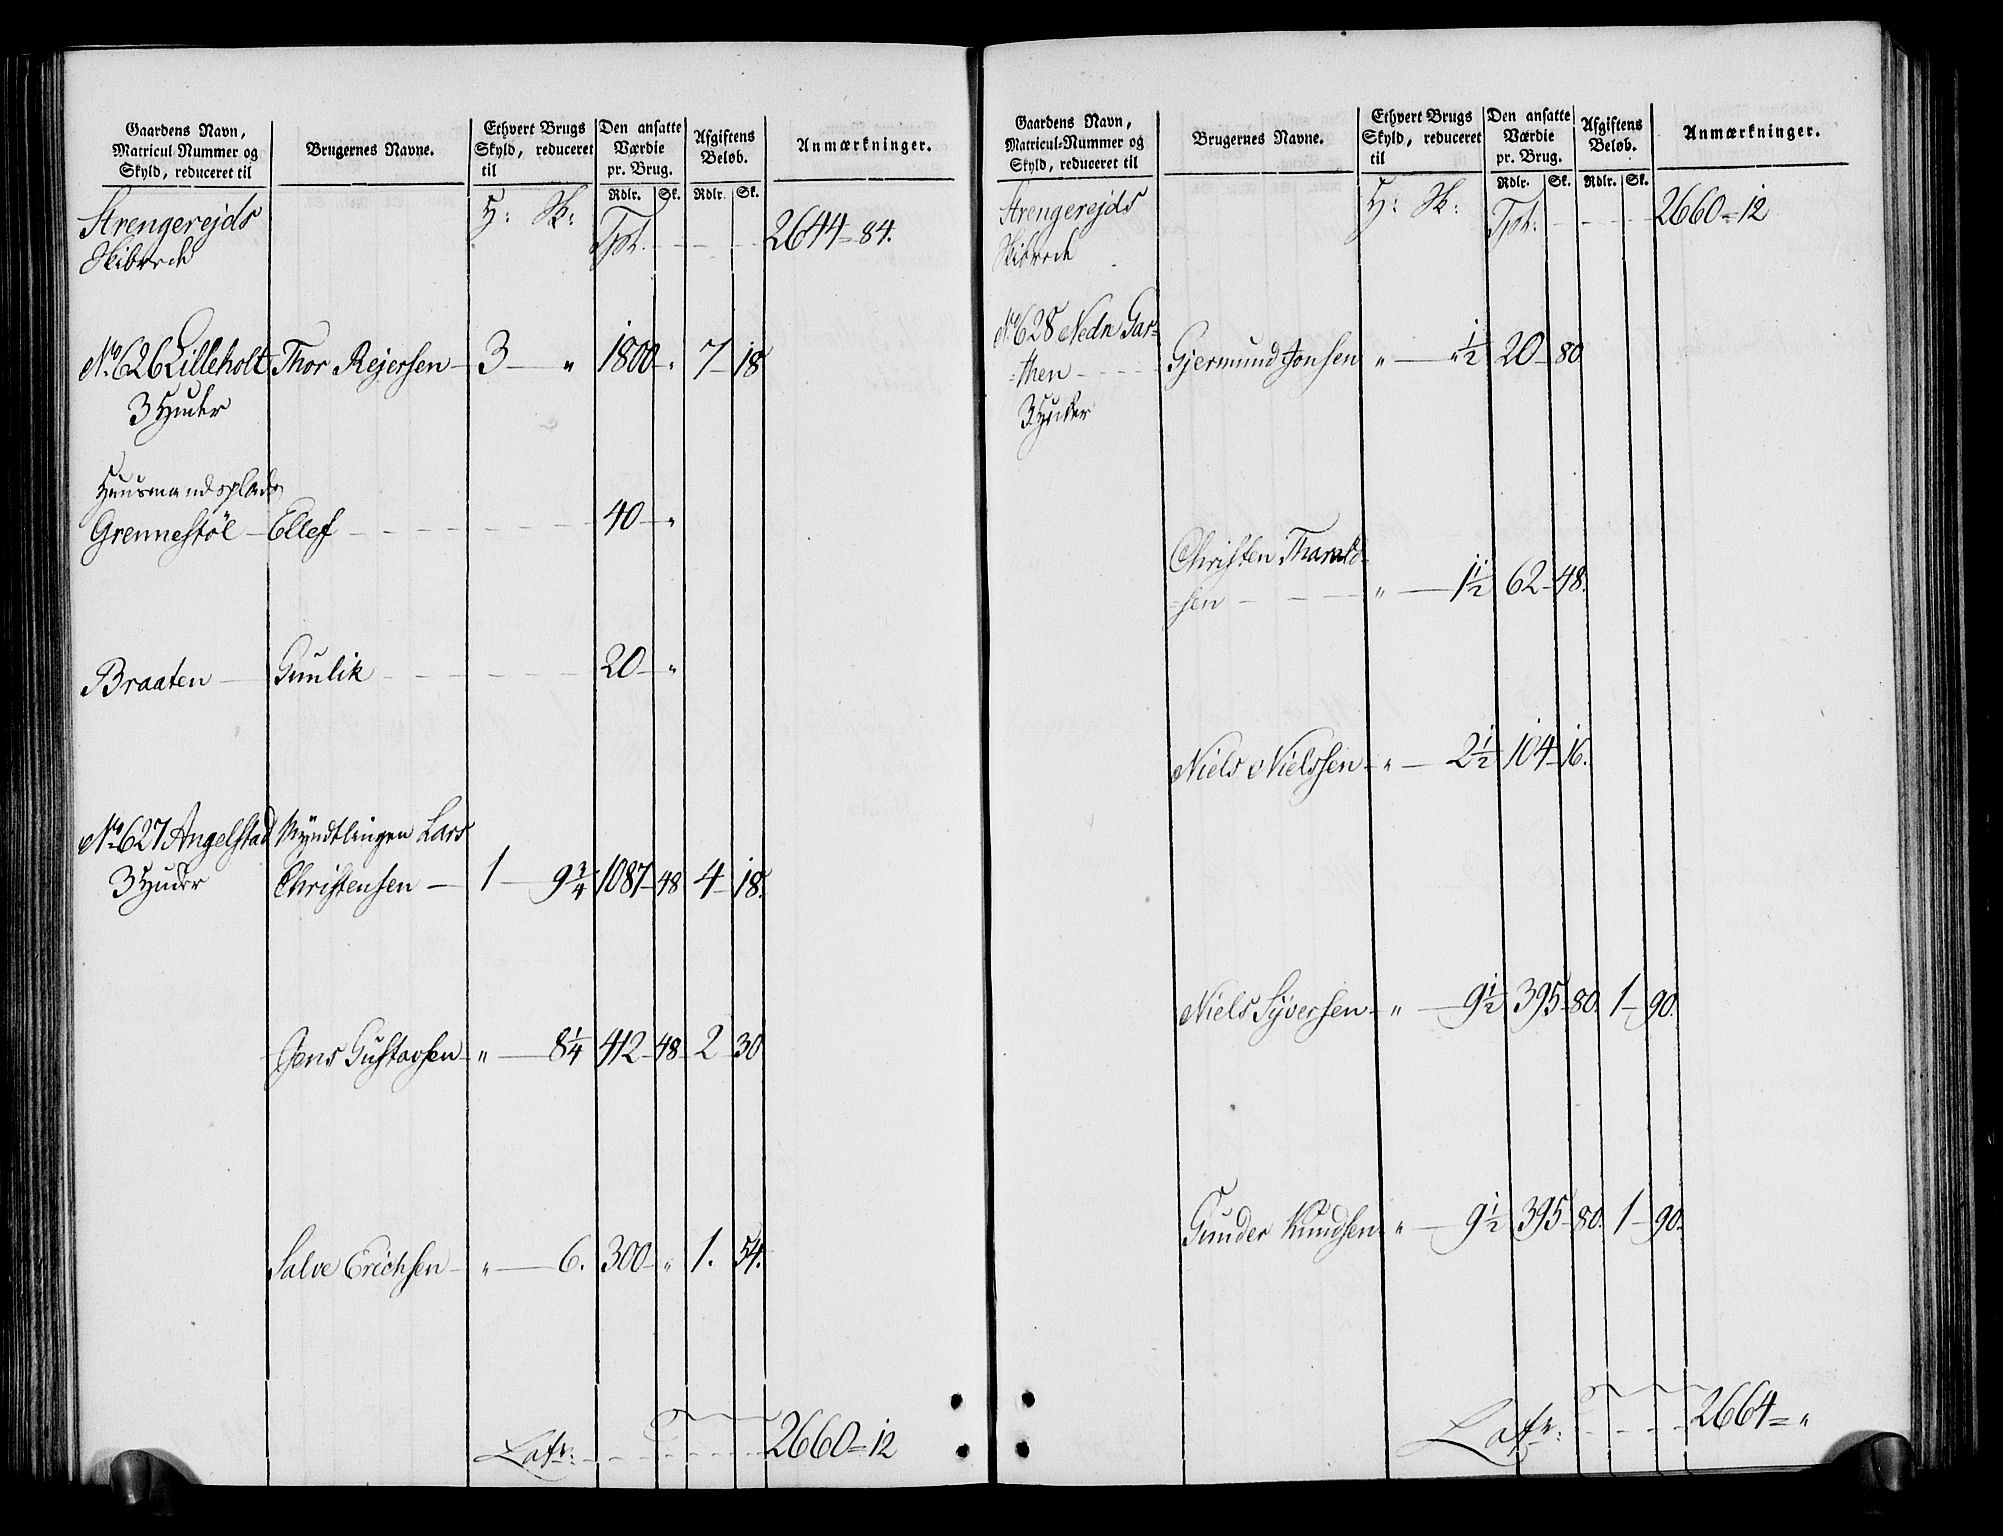 Gaardens Navn, Matricul-Nummer og Skyld, reduceret til | Brugernes Navne. | Ethvert Brugs Skyld, reduceret til | Den ansatte Værdie pr. Brug. | Afgiftens Beløb. | Anmærkninger.
Rdlr. Sk. Rdlr. Sk.
Strengerejds H: Sk: Tpt. 2644 = 84.
Skibrede
No 626 Lilleholt Thor Rejersen 3 — „ 1800 — „ 7 — 18
3 Huder
Huusmandsplads
Grennestöl — Ellef 40 — „
Braaten — Gunlik 20 — „
No 627 Angelstad Myndtlingen Lars
3 Huder Christensen — 1 — 9 3/4 1087 — 48 4 — 18.
Jens Gustavsen — „ — 8 1/4 412 — 48 2 30
Salve Erichsen — „ — 6. 300 — „ 1. 54.
Latr: 2660 = 12
Gaardens Navn, Matricul-Nummer og Skyld, reduceret til | Brugernes Navne. | Ethvert Brugs Skyld, reduceret til | Den ansatte Værdie pr. Brug. | Afgiftens Beløb. | Anmærkninger.
Rdlr. Sk. Rdlr. Sk.
Strengerejds H: Sk: Tpt. 2660 = 12
Skibrede
No 628 Nedre Gar=
=then Gjermund Jonsen „ — 1/2 20 — 80
3 Huder
Christen Tharald=
=sen „ — 1 1/2 62 — 48.
Niels Nielssen — „ — 2 1/2 104 — 16.
Niels Syversen — „ — 9 1/2 395 — 80. 1 — 90.
Gunder Knudsen — „ — 9 1/2 395 — 80. 1 — 90.
Latr: 2664 = „